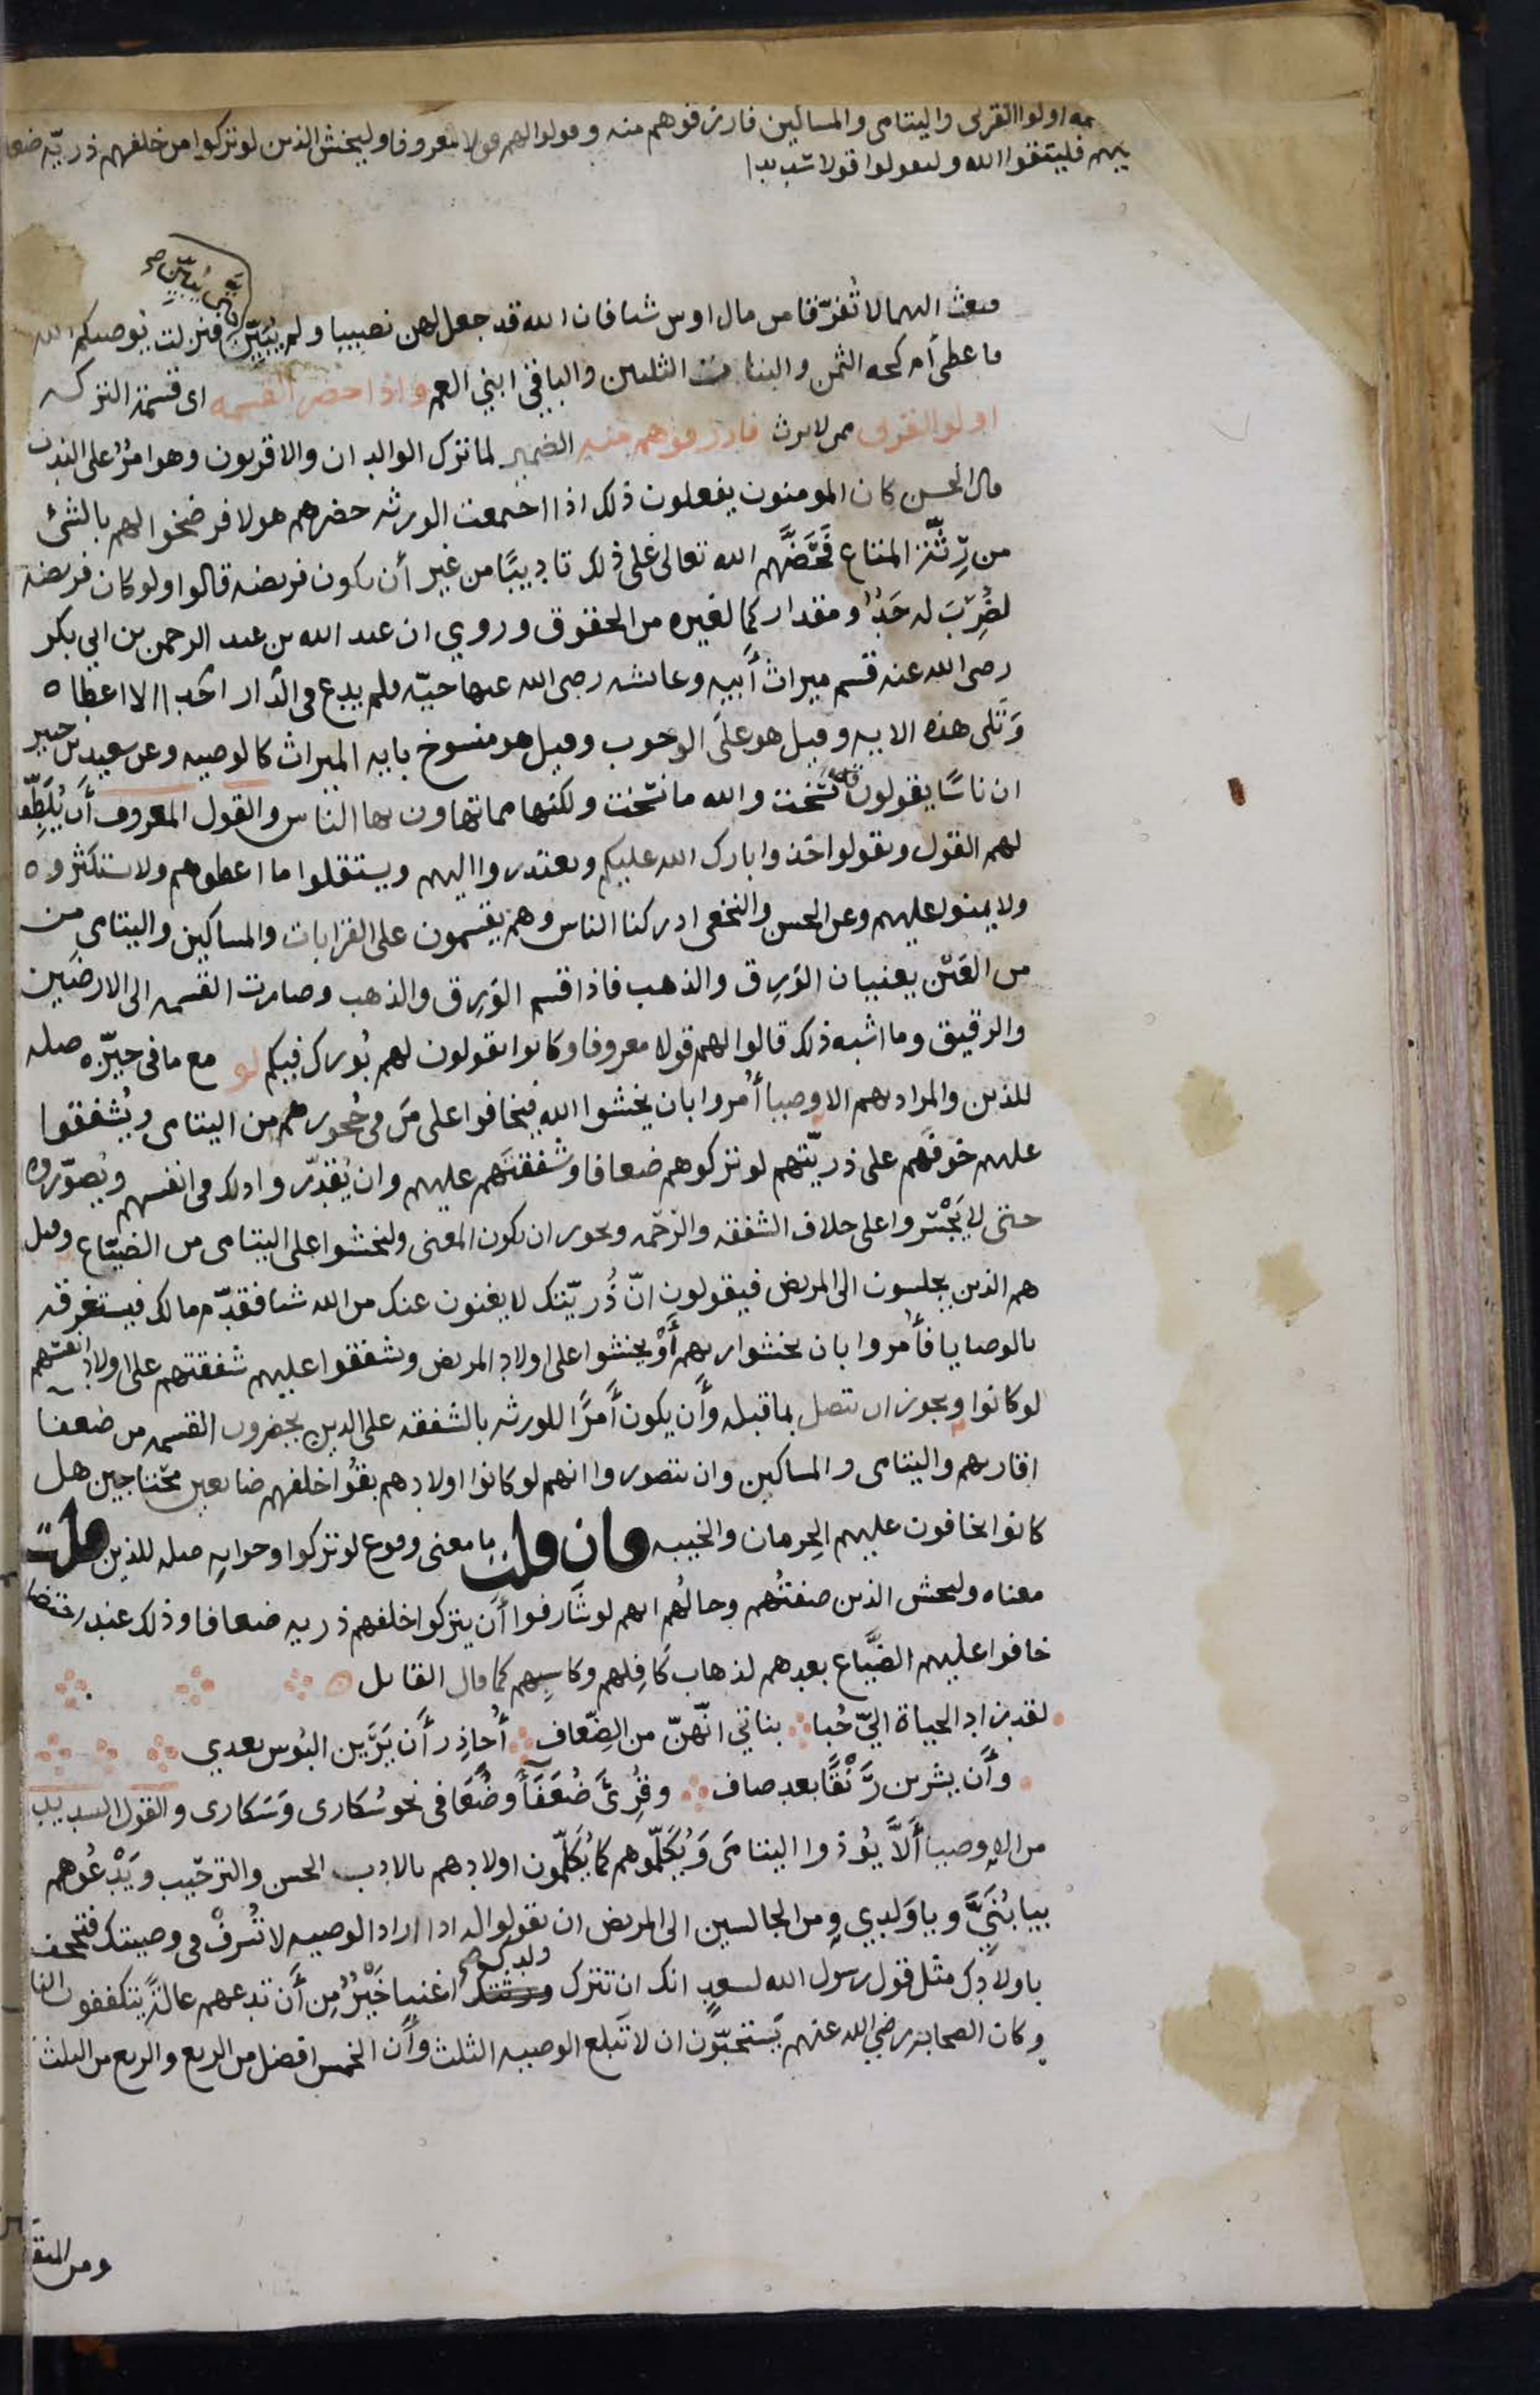 ـمه اولوا القربى واليتامى والمساكين فارزقوهم منه وقولوا لهم قولا معروفا وليخش الذين لو تركوا من خلفهم ذريّة ضعا
يهم فليتقوا الله وليقولوا قولا سديدا
يبيّن صح
فبعث اليهما لا تُفرّقا من مال اوس شيا فان الله قد جعل لهن نصيبا ولم يُبيّن فنزلت يُوصيكم الله
فاعطى أم كحه الثمن والبنات الثلثين والباقي ابني العم واذا حضر القسمه اى قسمة التركه
اولو القربى ممن لا يرث فارزقوهم منه الضمير لما ترك الوالدان والاقربون وهو امرٌ على الندب
قال الحسن كان المومنون يفعلون ذلك اذا اجتمعت الورثه حضرهم هولا فرضخوا لهم بالشئ
من رِثّة المتاع فَحَضَّهم الله تعالى على ذلك تاديبًا من غير أن يكون فريضه قالوا ولو كان فريضة
لضُرِبَ له حَدٌّ ومقدار كما لغيره من الحقوق وروي ان عبد الله بن عبد الرحمن بن ابي بكر
رضى الله عنه قسم ميراث أبيه وعائشه رضى الله عنها حيّه فلم يدع فى الدّار احَدا الا اعطاه
وَتلى هذه الايه وقيل هو علَى الوجوب وقيل هو منسوخ بايه الميراث كالوصيه وعن سعيد بن جبير
ان ناسًا يقولون نُسخت والله ما نسّخت ولكنها مما تهاون بها الناس والقول المعروف أن يُلَطِّفوا
لهم القول ويقولوا خذوا بارك الله عليكم ويعتذروا اليهم ويستقلوا ما اعطوهم ولا يستكثروه
ولا يمنوا عليهم وعن الحسن والنخعى ادركنا الناس وهم يقسمون على القرابات والمساكين واليتامى من
من العَيْن يعنيان الوَرِق والذهب فاذا قسم الوَرِق والذهب وصارت القسمه الى الارضَين
والرقيق وما اشبه ذلك قالوا لهم قولا معروفا وكانوا يقولون لهم بُورك فيكم لو مع ما فى حيّزه صله
للذين والمراد بهم الاوصيا أُمروا بان يخشوا الله فيخافوا على مَن فى حُجورهم من اليتامى ويُشفقوا
عليهم خوفَهم على ذريّتهم لو تركوهم ضعافا وشفقتَهم عليهم وان يُقدّروا ذلك فى انفسهم ويُصوّروه
حتى لا يَجْسروا على خلاف الشفقه والرّحمه ويجوز ان يكون المعنى وليخشوا على اليتامى من الضيّاع وقيل
هم الذين يجلسون الى المريض فيقولون انّ ذُريّتك لا يغنون عنك من الله شيا فقدّم مالك فيستغرقه
بالوصايا فأُمروا بان يخشوا ربهم أَوْ يخشوا على اولاد المريض ويشفقوا عليهم شفقتهم على اولاد انفسهم
لو كانوا ويجوز ان تتصل بما قبله وأَن يكون أَمرًا للورثه بالشفقه على الذين يحضرون القسمه من ضعفا
اقاربهم واليتامى والمساكين وان يتصوروا انهم لو كانوا اولادهم بقُوا خلفهم ضايعين محتاجين هل
كانوا يخافون عليهم الحِرمان والخيبه فان قلت ما معنى وقوع لو تركوا وجوابه صله للذين قلت
معناه وليخش الذين صفتُهم وحالُهم انهم لو شَارفوا أَن يتركوا خلفهم ذريه ضعافا وذلك عند
خافوا عليهم الضَّياع بعدهم لذهاب كَافِلهم وكاسِبهم كما قال القايل
لقد زاد الحياة اليّ حُبا بناتي انّهنّ من الضّعاف أُحاذِر أَن يَرَين البُوس بعدي
وأَن يشربن رَنْقًا بعد صاف وقُرِئ ضُعَفَآ وضُعَافى نحو سُكارى وَسَكارى والقول السديد
من الاوصيا أَلاَّ يُوذوا اليتامَى وَيُكَلّموهم كما يُكَلّمون اولادهم بالادب الحسن والترحيب ويَدْعُوهم
بيا بُنَيَّ ويا وَلدِي ومن الجالسين الى المريض ان يقولوا له اذا اراد الوصيه لا تُسرفْ فى وصيتك فتجحف
باولادك مثل قول رسول الله لسعدٍ انك ان تترك ولدك صح اغنيا خَيْرٌ من أَن تدعهم عالةً يتكففون النا
وكان الصحابة رضي الله عنهم يَستحبّون ان لا تَبلغ الوصيه الثلث وأَن الخمس افضل من الربع والربع من الثلث
ومن